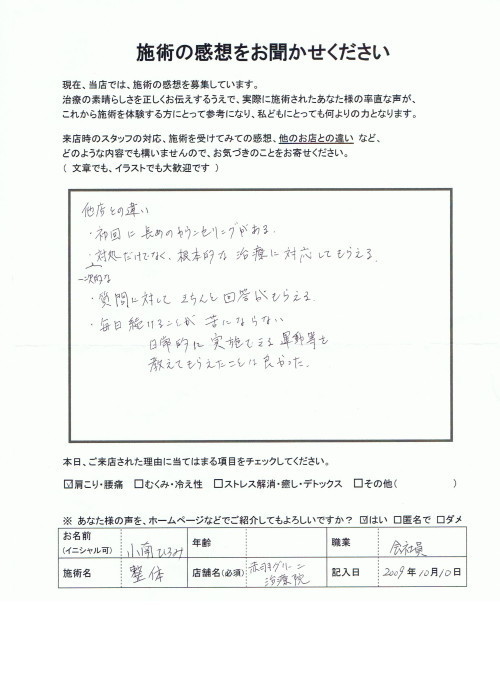 施術の感想をお聞かせください
現在、当店では、施術の感想を募集しています。
治療の素晴らしさを正しくお伝えするうえで、実際に施術されたあなた様の率直な声が、
これから施術を体験する方にとって参考になり、私どもにとっても何よりの力となります。
来店時のスタッフの対応、施術を受けてみての感想、他のお店との違い など、
どのような内容でも構いませんので、お気づきのことをお寄せください。
( 文章でも、イラストでも大歓迎です )
他店との違い
・初回に長めのカウンセリングがある。
・対処だけでなく、根本的な治療に対応してもらえる。
一次的な
・質問に対してきちんと回答がもらえる。
・毎日続けることが苦にならない
日常的に実施できる運動等も
教えてもらえたことは良かった。
本日、ご来店された理由に当てはまる項目をチェックしてください。
☑肩こり・腰痛 □むくみ・冷え性 □ストレス解消・癒し・デトックス □その他( )
※ あなた様の声を、ホームページなどでご紹介してもよろしいですか？ ☑はい □匿名で □ダメ
お名前 (イニシャル可) 小南ひろみ 年齢 職業 会社員
施術名 整体 店舗名(必須) グリーン治療院 記入日 2009年10月10日